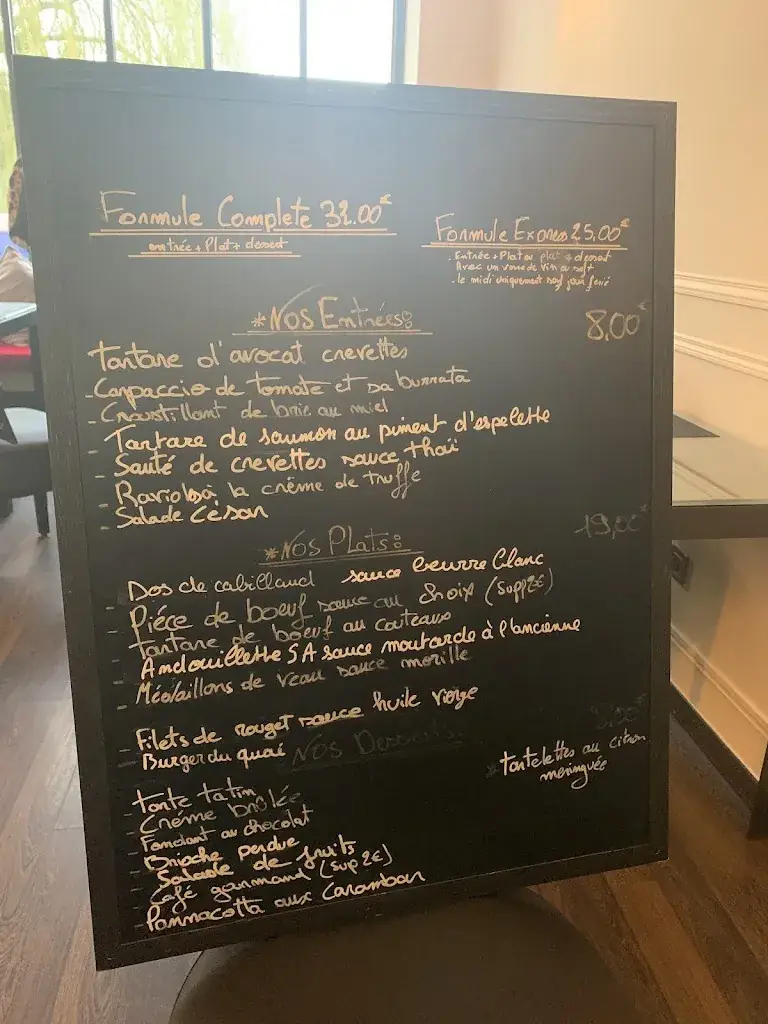 Formule Complete 32.00€
entrée + Plat + dessert
Formule Express 25.00€
- Entrée + Plat ou plat + dessert
Avec un verre de vin ou soft
- le midi uniquement sauf jour ferié
*Nos Entrées:
8,00€
Tartare d'avocat crevettes
- Carpaccio de tomate et sa burrata
- Croustillant de brie au miel
- Tartare de saumon au piment d'espelette
- Sauté de crevettes sauce thaï
- Ravioles à la crème de truffe
- Salade César
19,00€
*Nos Plats:
Dos de cabillaud sauce beurre blanc
- Piéce de boeuf sauce au choix (supp 2€)
- Tartare de boeuf au couteaux
- Andouillette 5A sauce moutarde à l'ancienne
- Médaillons de veau sauce morille
- Filets de rouget sauce huile vierge
- Burger du quai
Nos Desserts:
8,00€
* tartelettes au citron
meringuée
- Tarte tatin
- Créme brûlée
- Fondant au chocolat
- Brioche perdue
- Salade de fruits
- Café gourmand (sup 2€)
- Pannacotta aux Carambar